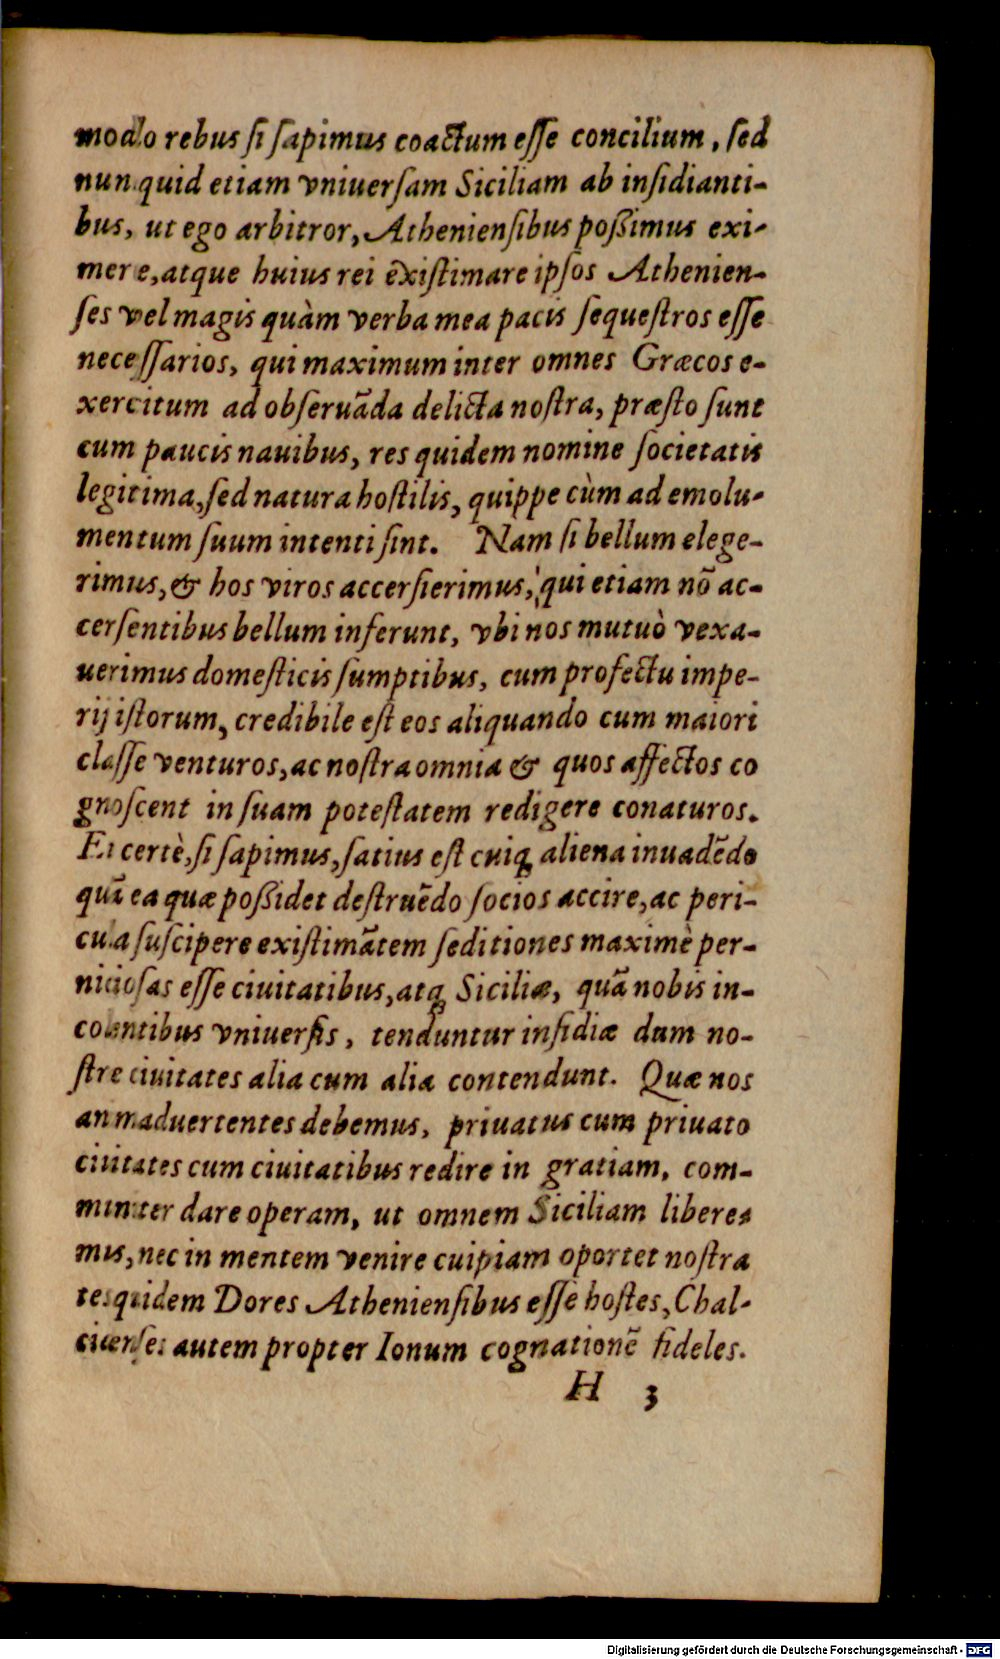 modo rebus ſi ſapimus coactum eſſe concilium, ſed
nunquid etiam vniuerſam Siciliam ab inſidianti-
bus, ut ego arbitror, Athenienſibus poßimus exi-
mere, atque huius rei exiſtimare ipſos Athenien-
ſes vel magis quàm verba mea pacis ſequeſtros eſſe
neceſſarios, qui maximum inter omnes Græcos e-
xercitum ad obſeruãda delicta noſtra, præſto ſunt
cum paucis nauibus, res quidem nomine ſocietatis
legitima, ſed natura hoſtilis, quippe cùm ad emolu-
mentum ſuum intenti ſint. Nam ſi bellum elege-
rimus, & hos viros accerſierimus, qui etiam nõ ac-
cerſentibus bellum inferunt, vbi nos mutuò vexa-
uerimus domeſticis ſumptibus, cum profectu impe-
rij iſtorum, credibile eſt eos aliquando cum maiori
claſſe venturos, ac noſtra omnia & quos affectos co
gnoſcent in ſuam poteſtatem redigere conaturos.
Et certè, ſi ſapimus, ſatius eſt cuiq; aliena inuadẽdo
quã ea quæ poßidet deſtruẽdo ſocios accire, ac peri-
cula ſuſcipere exiſtimãtem ſeditiones maximè per-
nicioſas eſſe ciuitatibus, atq; Siciliæ, quã nobis in-
colentibus vniuerſis, tenduntur inſidiæ dum no-
ſtre ciuitates alia cum alia contendunt. Quæ nos
anmaduertentes debemus, priuatus cum priuato
ciuitates cum ciuitatibus redire in gratiam, com-
muniter dare operam, ut omnem Siciliam libere-
mus, nec in mentem venire cuipiam oportet noſtra
tes quidem Dores Athenienſibus eſſe hoſtes, Chal-
cidenſes autem propter Ionum cognationẽ fideles.
H 3
Digitalisierung gefördert durch die Deutsche Forschungsgemeinschaft - DFG